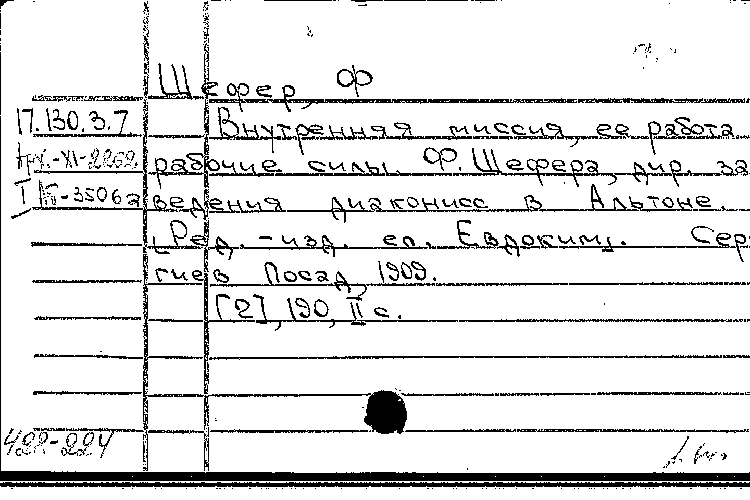 Шефер, Ф
17.130.3.7
Внутренняя миссия, ее работа
рабочие силы. Ф. Шефера, дир. за
I
-35062
ведения диаконисс в Альтоне.
[Ред.-изд. еп. Евдоким]. Сер
гиев Посад, 1909.
[2], 190, II с.
422-224